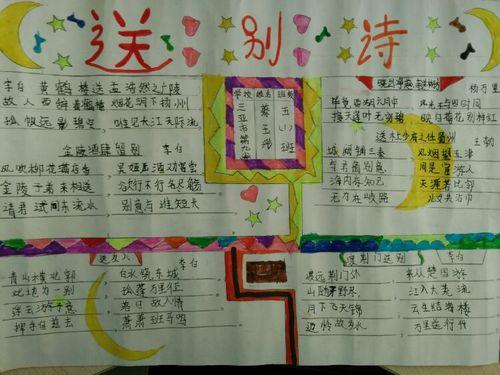 送别诗
李白 黄鹤楼送孟浩然之广陵
故人西辞黄鹤楼 烟花三月下扬州
孤帆远影碧空 唯见长江天际流
金陵酒肆留别 李白
风吹柳花满店香 吴姬压酒劝客尝
金陵子弟来相送 欲行不行各尽觞
请君试问东流水 别意与谁短天
学校 姓名 班级
三亚市第九小
五(1)班
杨万里
毕竟西湖六月中 风光不与四时同
接天莲叶无穷碧 映日荷花别样红
送杜少府之任蜀州 王勃
城阙辅三秦 风烟望五津
与君离别意 同是宦游人
海内存知己 天涯若比邻
无为在歧路 儿女共沾巾
送友人 李白
青山横北郭 白水绕东城
此地为一别 孤蓬万里征
浮云游子意 落日故人情
挥手自兹去 萧萧班马鸣
渡荆门送别 李白
渡远荆门外 来从楚国游
山随平野尽 江入大荒流
月下飞天镜 云生结海楼
仍怜故乡水 万里送行舟